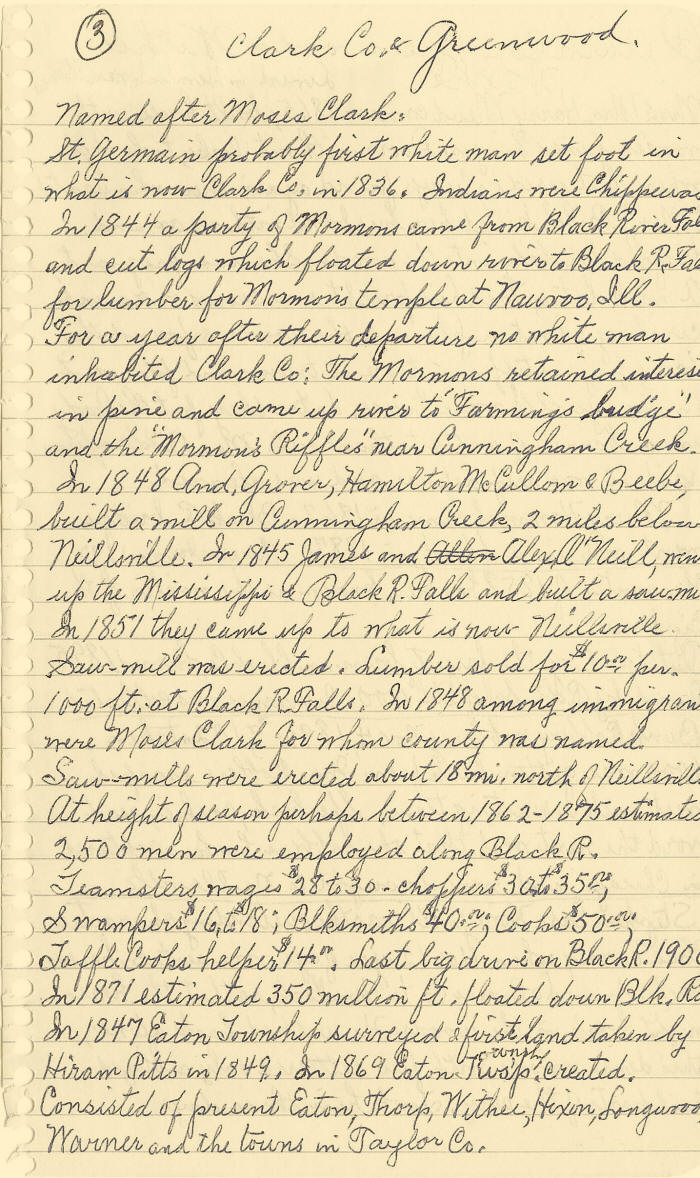 3
Clark Co. & Greenwood.
Named after Moses Clark:
St. Germain probably first white man set foot in
what is now Clark Co. in 1836. Indians were Chippewa
In 1844 a party of Mormons came from Black River Fal
and cut logs which floated down river to Black R. Fal
for lumber for Mormon's temple at Nauvoo, Ill.
For a year after their departure no white man
inhabited Clark Co: The Mormons retained interes
in pine and came up river to "Farming's
and the "Mormon's Riffles" near Cunningham Creek.
In 1848 And. Grover, Hamilton McCullom & Beebe,
built a mill on Cunningham Creek, 2 miles below
Neillsville. In 1845 James and Allen Alex O'Neill, wen
up the Mississippi & Black R. Falls and built a saw-mi
In 1851 they came up to what is now Neillsville.
Saw-mill was erected. Lumber sold for $10.00 per.
1000 ft. at Black R. Falls. In 1848 among immigran
were Moses Clark for whom county was named.
Saw-mills were erected about 18 mi. north of Neillsville
At height of season perhaps between 1862-1875 estimated
2,500 men were employed along Black R.
Teamsters wages $28 to 30 - choppers $30 to $35.00,
Swampers $16 to $18; Blksmiths $40.00; Cooks $50.00;
Cooks helper $14.00. Last big drive on Black R. 190
In 1871 estimated 350 million ft. floated down Blk. R
In 1847 Eaton Township surveyed & first land taken by
Hiram Pitts in 1849. In 1869 Eaton Twsp. ownshp created.
Consisted of present Eaton, Thorp, Withee, Hixon, Longwood,
Warner and the towns in Taylor Co.